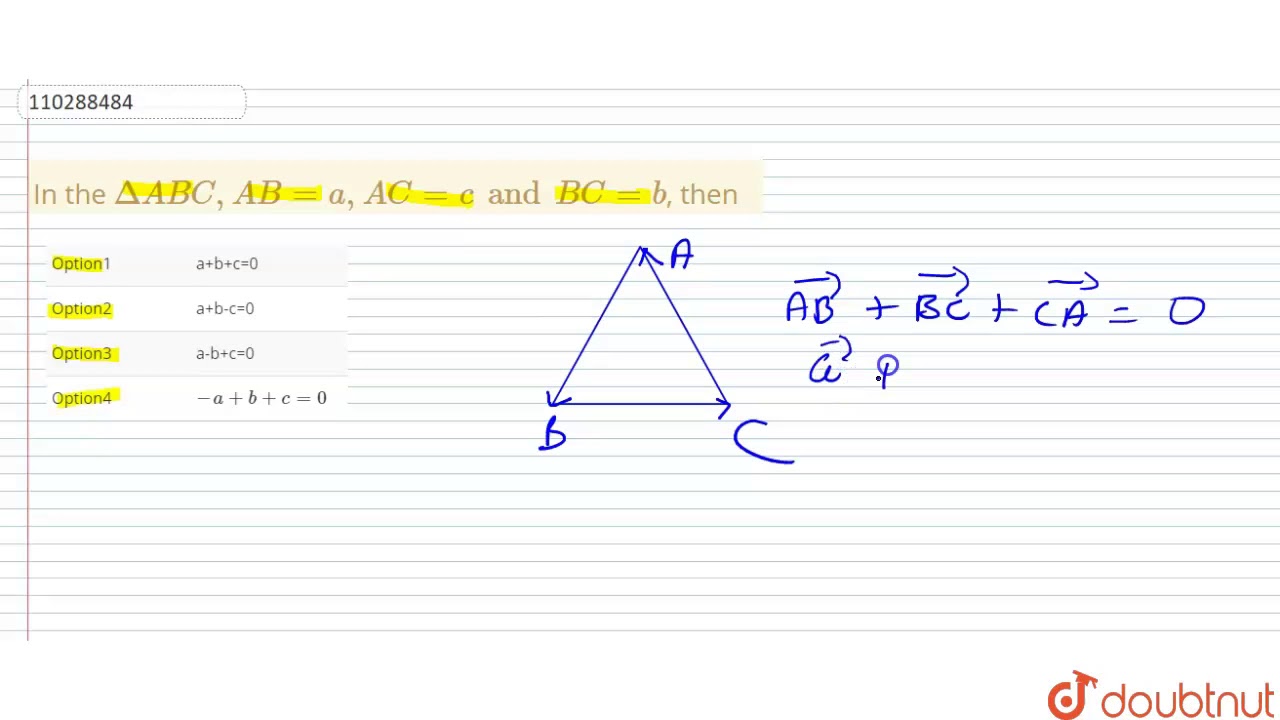 110288484
In the ΔABC, AB = a, AC = c and BC = b, then
Option1 a+b+c=0
Option2 a+b-c=0
Option3 a-b+c=0
Option4 −a + b + c = 0
A
B
C
AB + BC + CA = 0
a
doubtnut